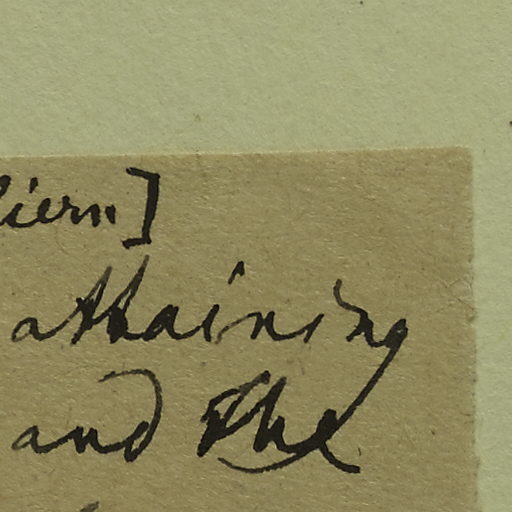 liern]
attaining
and the